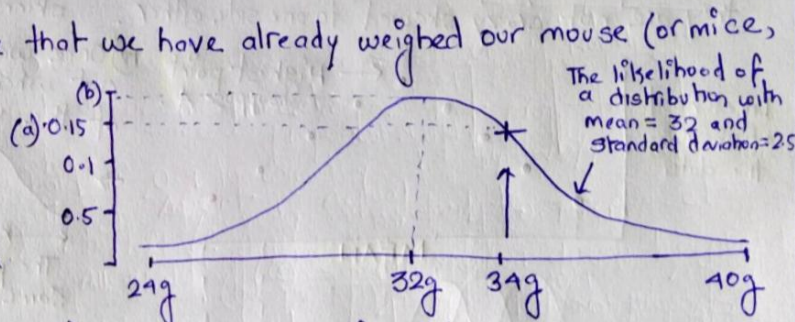 that we have already weighed our mouse (or mice,
The likelihood of
a distribution with
mean = 32 and
Standard deviation=2.5
(b)
(a) 0.15
0.1
0.5
24g 32g 34g 40g